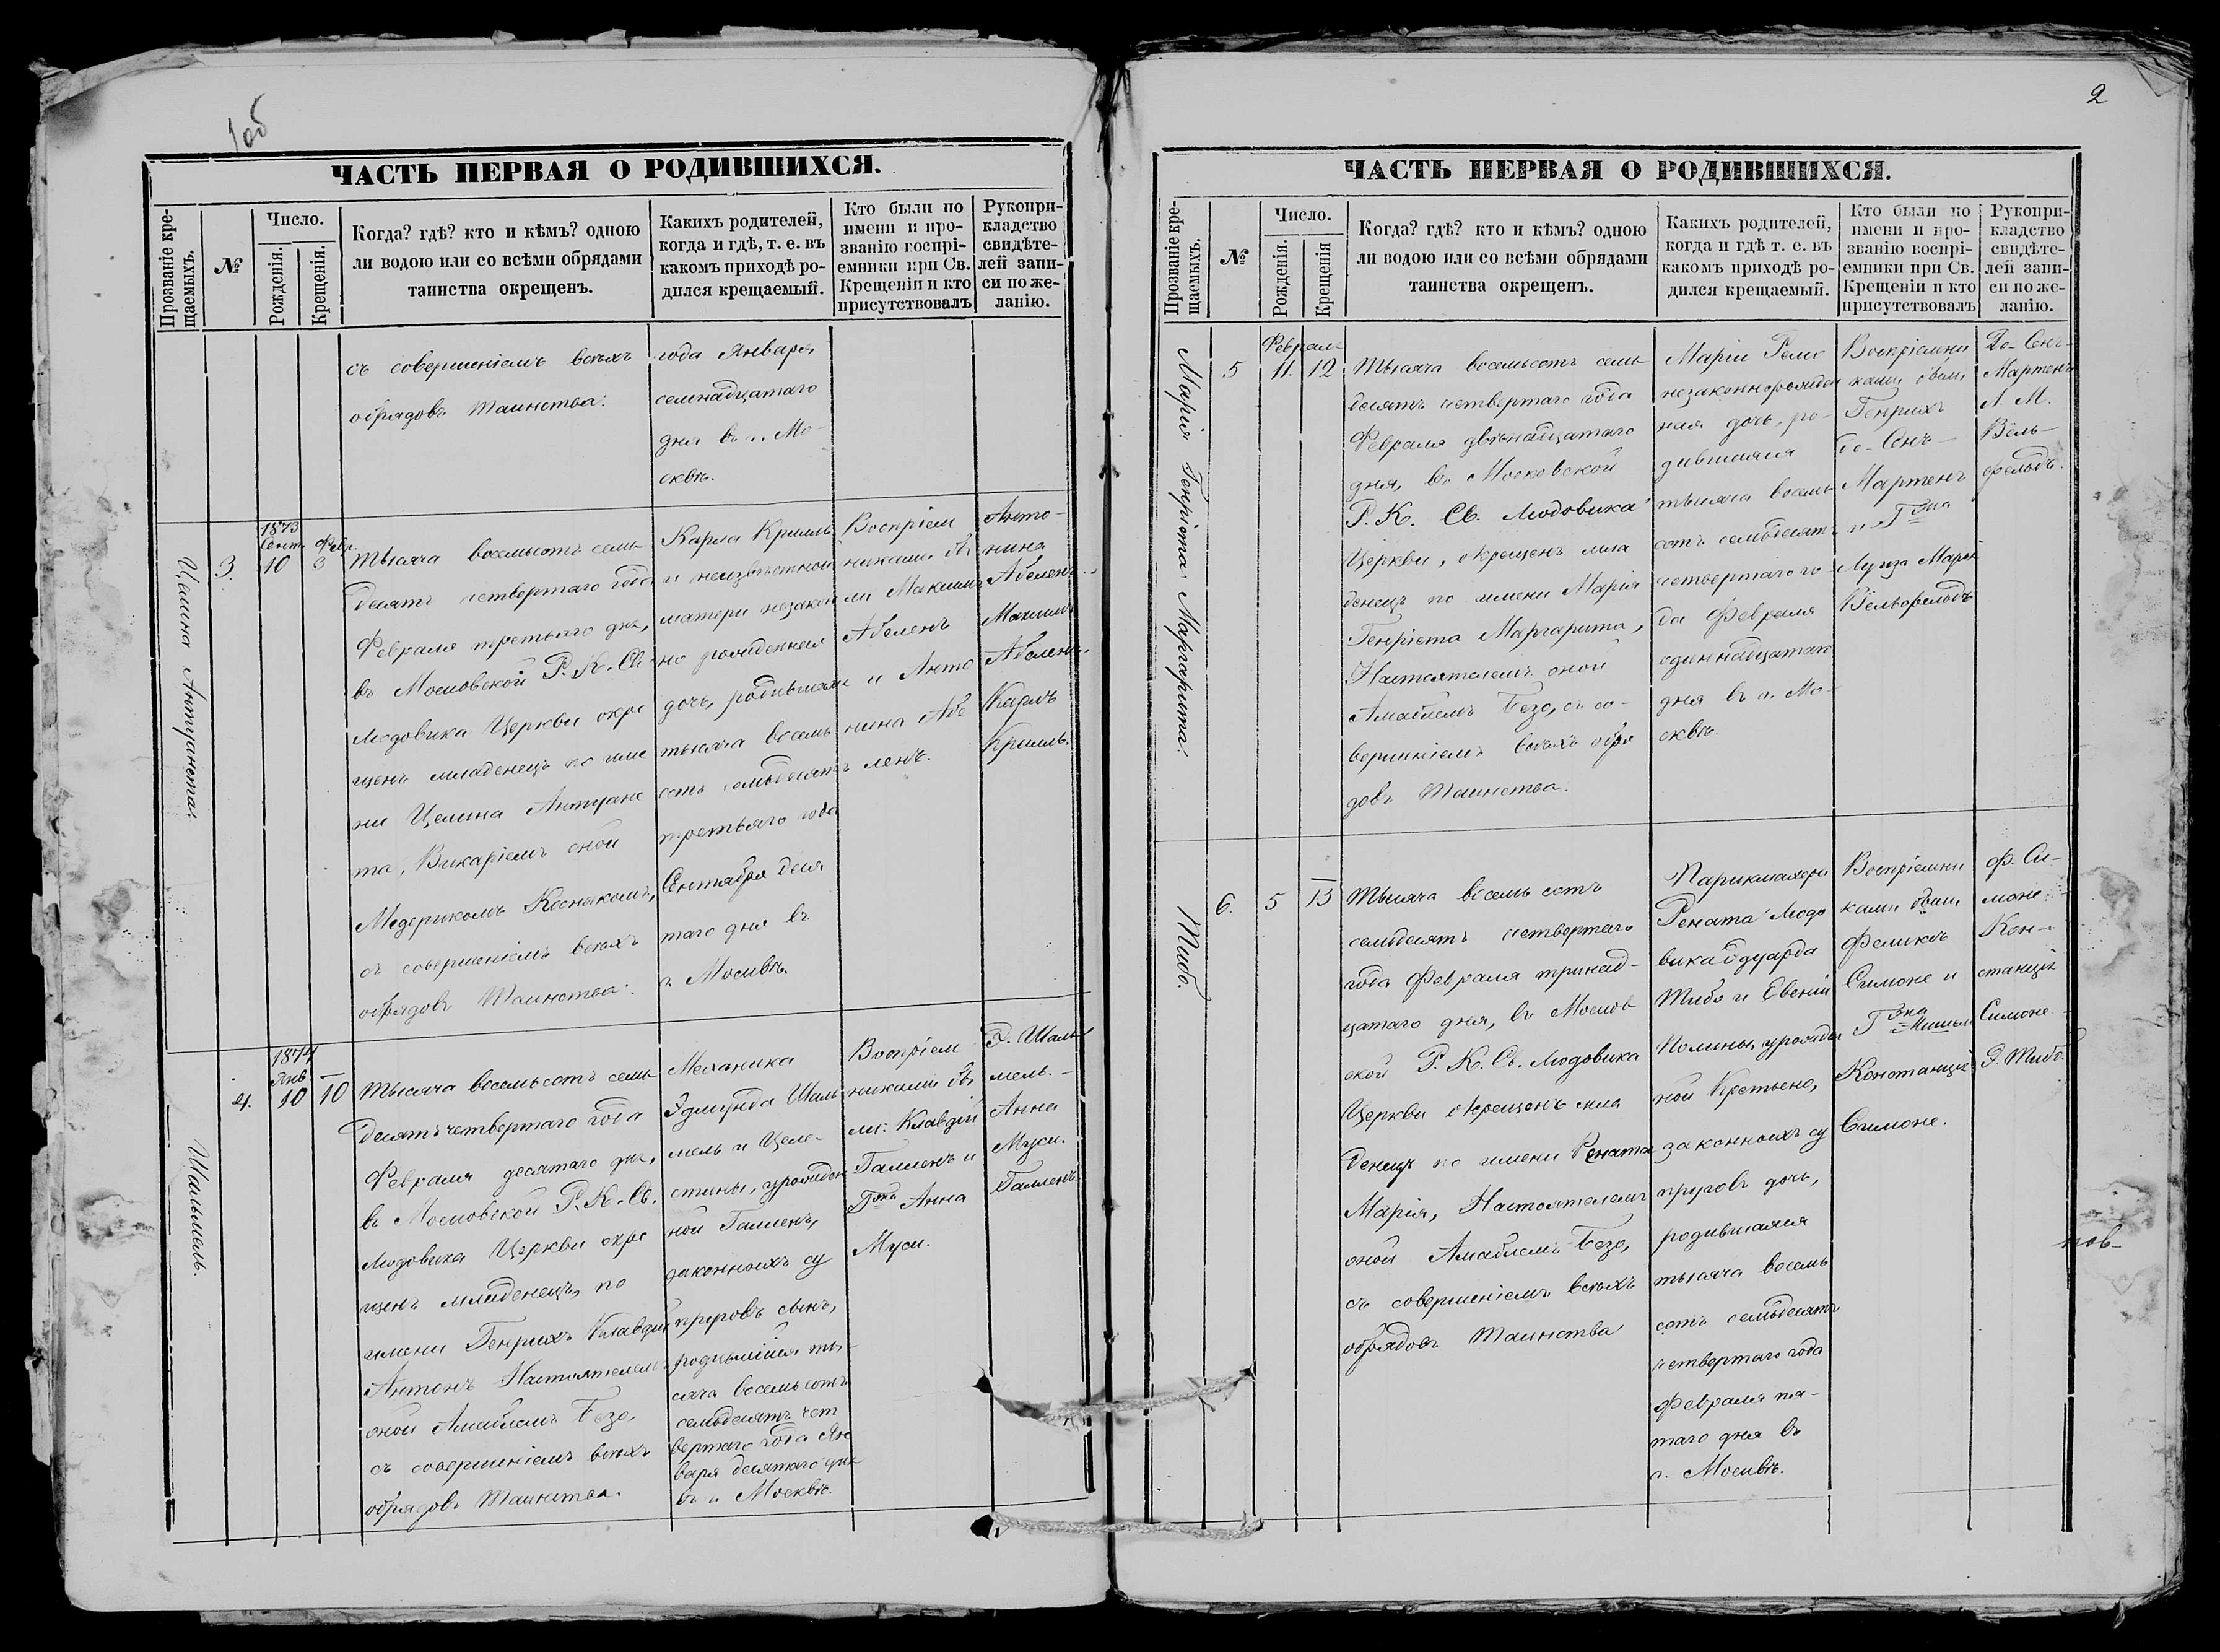 1об
ЧАСТЬ ПЕРВАЯ О РОДИВШИХСЯ.
Прозваніе кре-
щаемыхъ.
№
Число.
Рожденія.
Крещенія.
Когда? гдѣ? кто и кѣмъ? одною
ли водою или со всѣми обрядами
таинства окрещенъ.
Какихъ родителей,
когда и гдѣ, т. е. въ
какомъ приходѣ ро-
дился крещаемый.
Кто были по
имени и про-
званію воспрі-
емники при Св.
Крещеніи и кто
присутствовалъ
Рукопри-
кладство
свидѣте-
лей запи-
си по же-
ланію.
съ совершеніемъ всѣхъ
обрядовъ Таинства.
года Января
семнадцатаго
дня въ г. Мо-
сквѣ.
Целина Антуанета.
3.
1873
Сент.
10
Февр.
3
Тысяча восемьсотъ семь
десятъ четвертаго года
Февраля третьяго дня,
въ Московской Р. К. Св.
Людовика Церкви окре
щенъ младенецъ по име
ни Целина Антуане
та, Викаріемъ оной
Медерикомъ
съ совершеніемъ всѣхъ
обрядовъ Таинства.
Карла Крилль
и неизвѣстной
матери незакон
но рожденная
дочь, родившаяся
тысяча восемь
сотъ семьдесятъ
третьяго года
Сентября деся
таго дня въ
г. Москвѣ.
Воспріем
никами бы
ли Максимъ
Абеленъ
и Анто
нина Абе
ленъ.
Анто-
нина
Абеленъ.
Максимъ
Абеленъ.
Карлъ
Крилль.
Шальмель.
4.
1874
Янв.
10
—
10
Тысяча восемьсотъ семь
десятъ четвертаго года
Февраля десятаго дня,
въ Московской Р. К. Св.
Людовика Церкви окре
щенъ младенецъ, по
имени Генрихъ Клавдій
Антонъ Настоятелемъ
оной Амаблемъ Безо,
съ совершеніемъ всѣхъ
обрядовъ Таинства.
Механика
Эдмунда Шаль
мель и Целе-
стины, урожден
ной Галленъ,
законныхъ су
пруговъ сынъ,
родившійся ты-
сяча восемьсотъ
семьдесятъ чет
вертаго года Ян
варя десятаго дня
въ г. Москвѣ.
Воспріем
никами бы
ли: Клавдій
Галленъ и
Гжа Анна
Муси.
Э. Шаль
мель.-
Анна
Муси.
Галленъ.
2
ЧАСТЬ ПЕРВАЯ О РОДИВШИХСЯ.
Прозваніе кре-
щаемыхъ.
№
Число.
Рожденія.
Крещенія
Когда? гдѣ? кто и кѣмъ? одною
ли водою или со всѣми обрядами
таинства окрещенъ.
Какихъ родителей,
когда и гдѣ т. е. въ
какомъ приходѣ ро-
дился крещаемый.
Кто были по
имени и про-
званію воспрі-
емники при Св.
Крещеніи и кто
присутствовалъ
Рукопри-
кладство
свидѣте-
лей запи-
си по же-
ланію.
Марія Генріета Маргарита.
5
Февраля
11.
12
Тысяча восемьсотъ семь
десятъ четвертаго года
Февраля двѣнадцатаго
дня, въ Московской
Р. К. Св. Людовика
Церкви, окрещенъ мла
денецъ по имени Марія
Генріета Маргарита,
Настоятелемъ оной
Амаблемъ Безо, съ со-
вершеніемъ всѣхъ обря
довъ Таинства.
Маріи
незаконнорожден
ная дочь, ро-
дившаяся
тысяча восемь
сотъ семьдесятъ
четвертаго го-
да Февраля
одиннадцатаго
дня въ г. Мо-
сквѣ.
Воспріемни
ками были
Генрихъ
де-Сенъ-
Мартенъ
и Гжа
Луиза Марія
Вельфельдъ
Де-Сенъ-
Мартенъ
Л. М.
Вель-
фельдъ.
Тибо.
6.
5
—
13
Тысяча восемь сотъ
семьдесятъ четвертаго
года Февраля тринад-
цатаго дня, въ Москов
ской Р. К. Св. Людовика
Церкви окрещенъ мла
денецъ по имени Рената
Марія, Настоятелемъ
оной Амаблемъ Безо,
съ совершеніемъ всѣхъ
обрядовъ Таинства
Парикмахера
Рената Людо
вика Эдуарда
Тибо и Евгеніи
Полины, урожден
ной Кретьено,
законныхъ су
пруговъ дочь,
родившаяся
тысяча восемь
сотъ семьдесятъ
четвертаго года
Февраля пя-
таго дня въ
г. Москвѣ.
Воспріемни
ками были
Феликсъ
Симоне и
Гжа
Констанція
Симоне.
Ф. Си-
моне.-
Кон-
станція
Симоне
Э. Тибо.